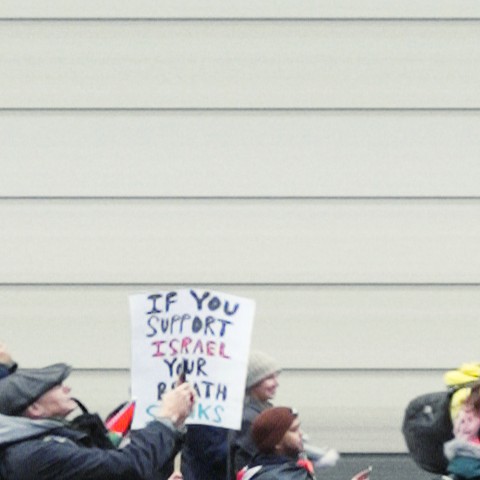 IF YOU
SUPPORT
ISRAEL
YOUR
BREATH